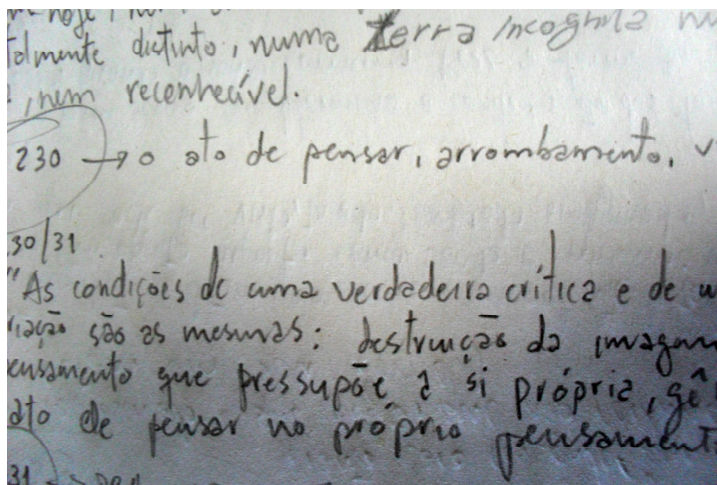 hoje
talmente distinto, numa terra incognita
, nem reconhecível.
230 → o ato de pensar, arrombamento, v
30/31
"As condições de uma verdadeira crítica e de u
riação são as mesmas: destruição da imagem
ensamento que pressupõe a si própria, gê
ato de pensar no próprio pensament
31